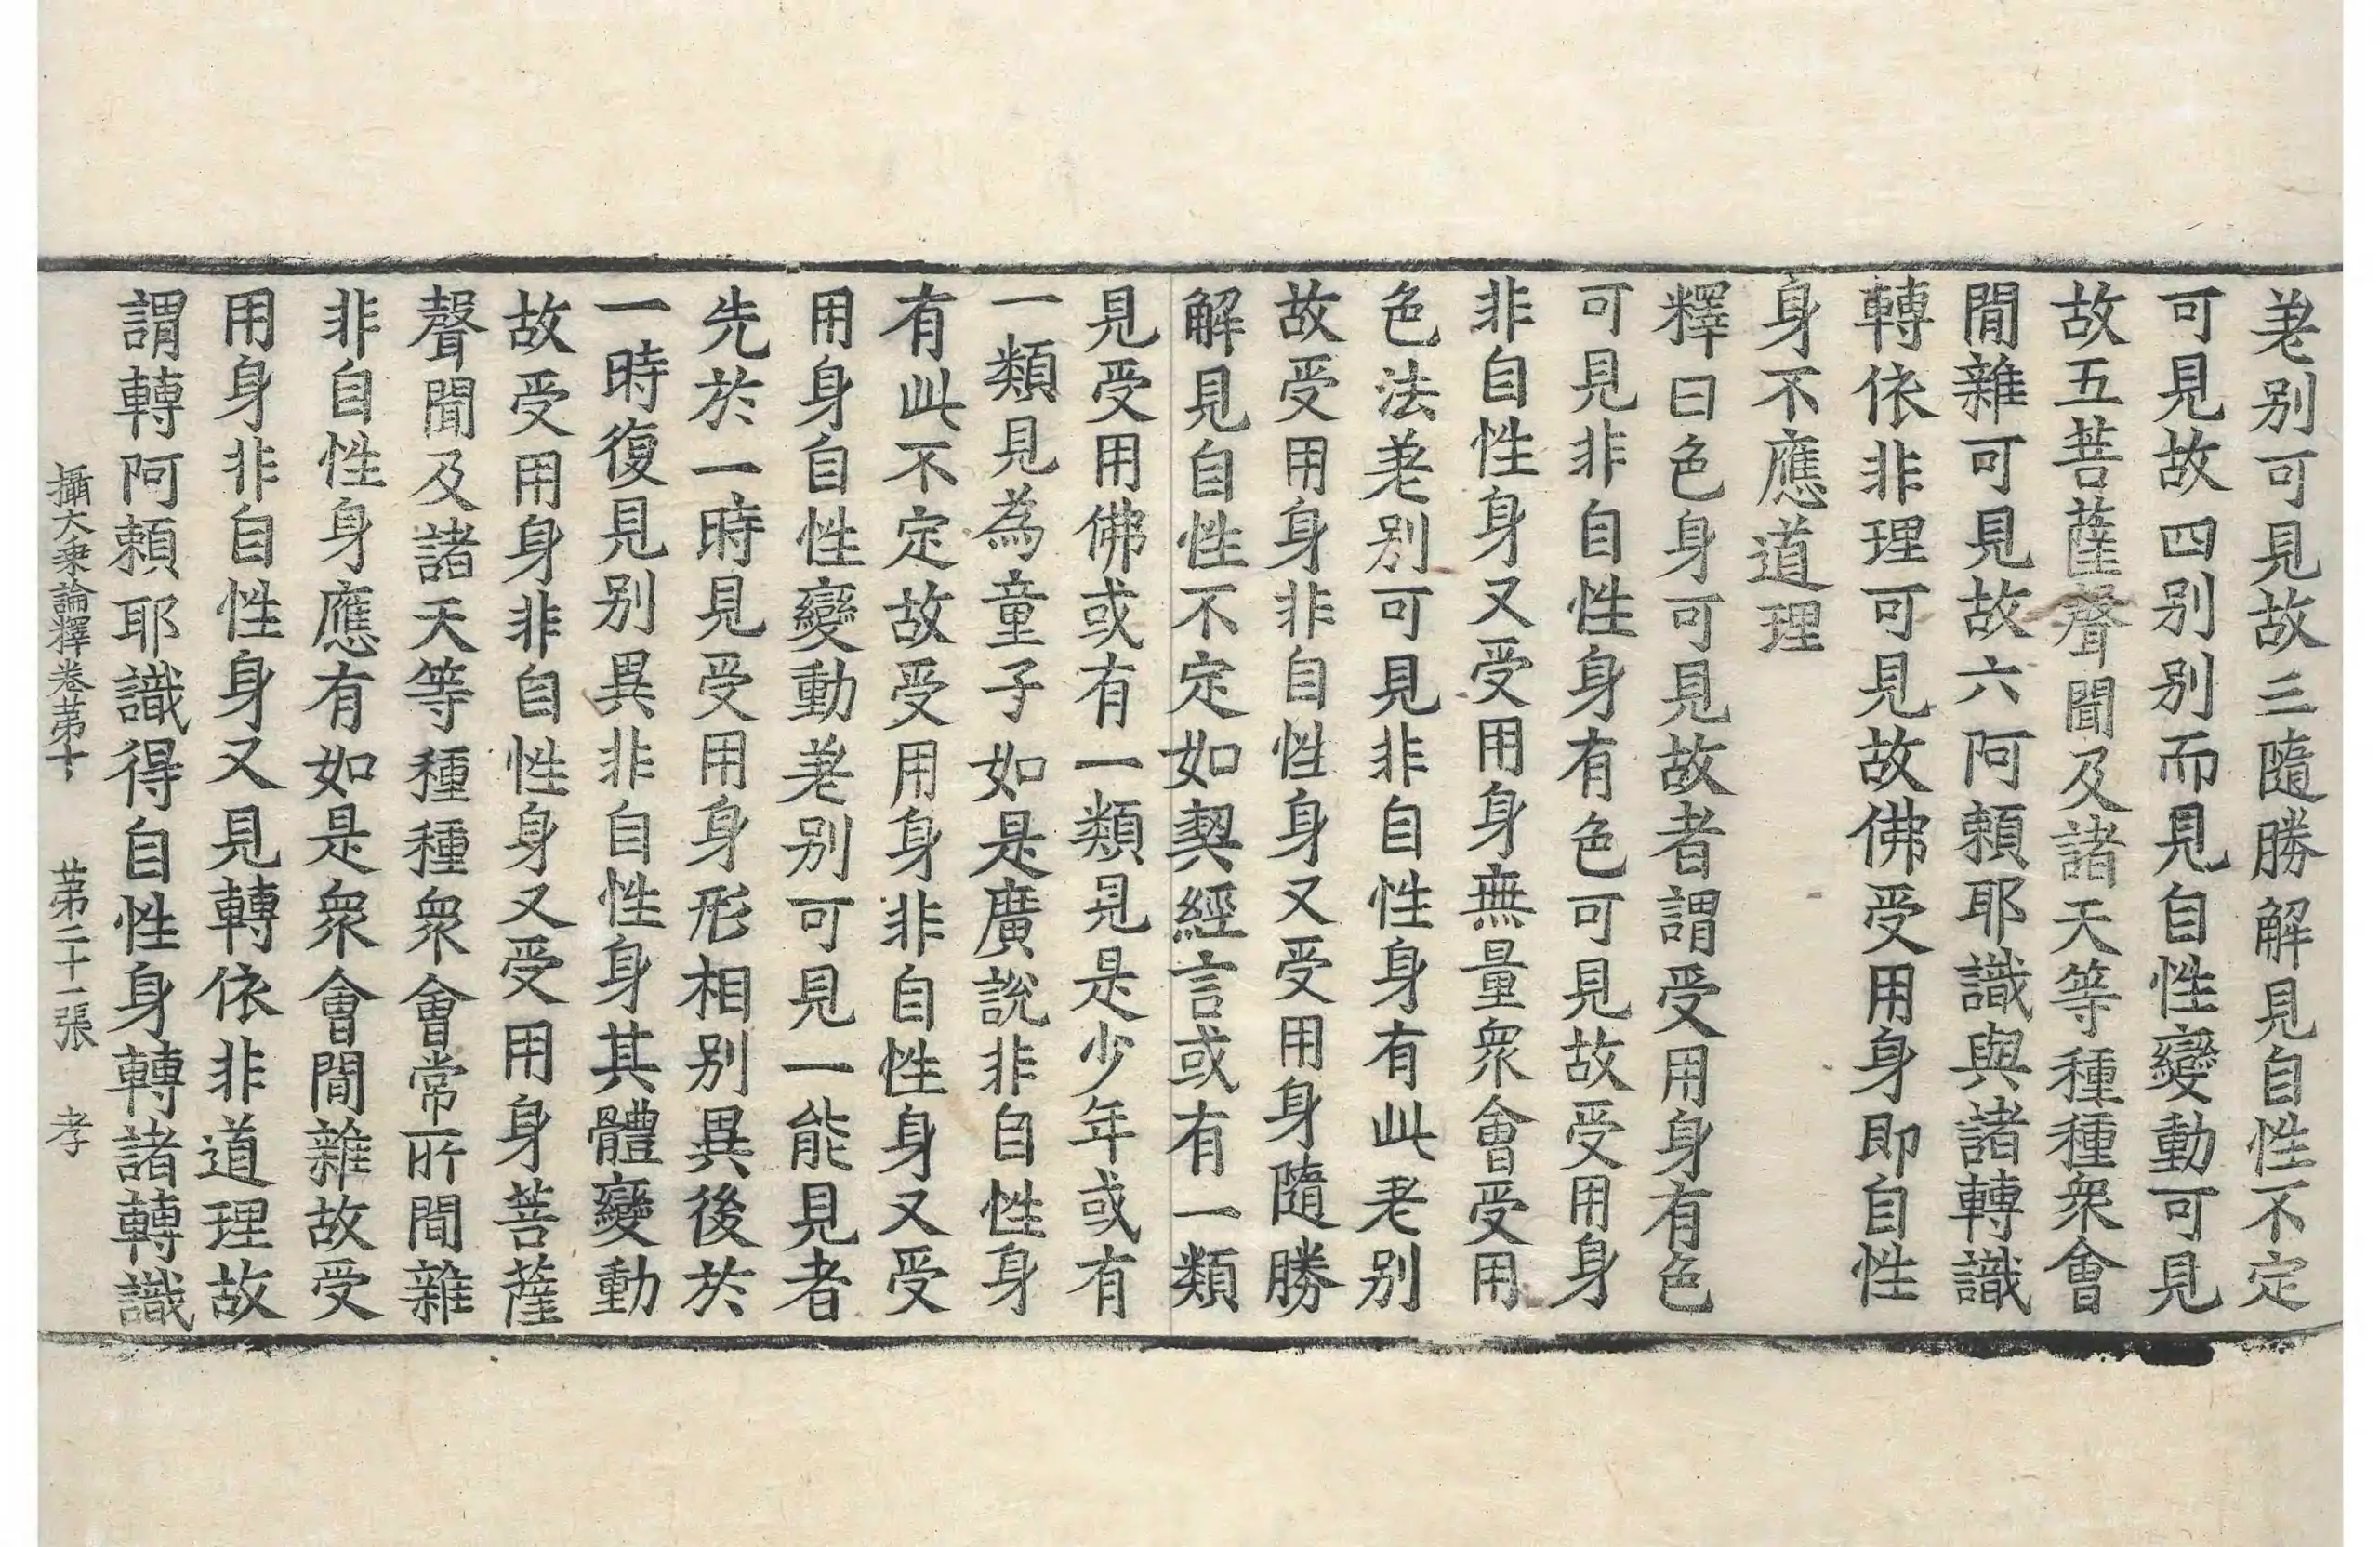 差別可見故三隨勝解見自性不定
可見故四別別而見自性變動可見
故五菩薩聲聞及諸天等種種衆會
閒雜可見故六阿賴耶識與諸轉識
轉依非理可見故佛受用身即自性
身不應道理
釋曰色身可見故者謂受用身有色
可見非自性身有色可見故受用身
非自性身又受用身無量衆會受用
色法差別可見非自性身有此差別
故受用身非自性身又受用身隨勝
解見自性不定如契經言或有一類
見受用佛或有一類見是少年或有
一類見為童子如是廣說非自性身
有此不定故受用身非自性身又受
用身自性變動差別可見一能見者
先於一時見受用身形相別異後於
一時復見別異非自性身其體變動
故受用身非自性身又受用身菩薩
聲聞及諸天等種種衆會常所閒雜
非自性身應有如是衆會閒雜故受
用身非自性身又見轉依非道理故
謂轉阿賴耶識得自性身轉諸轉識
攝大乘論釋卷苐十 苐二十一張 孝